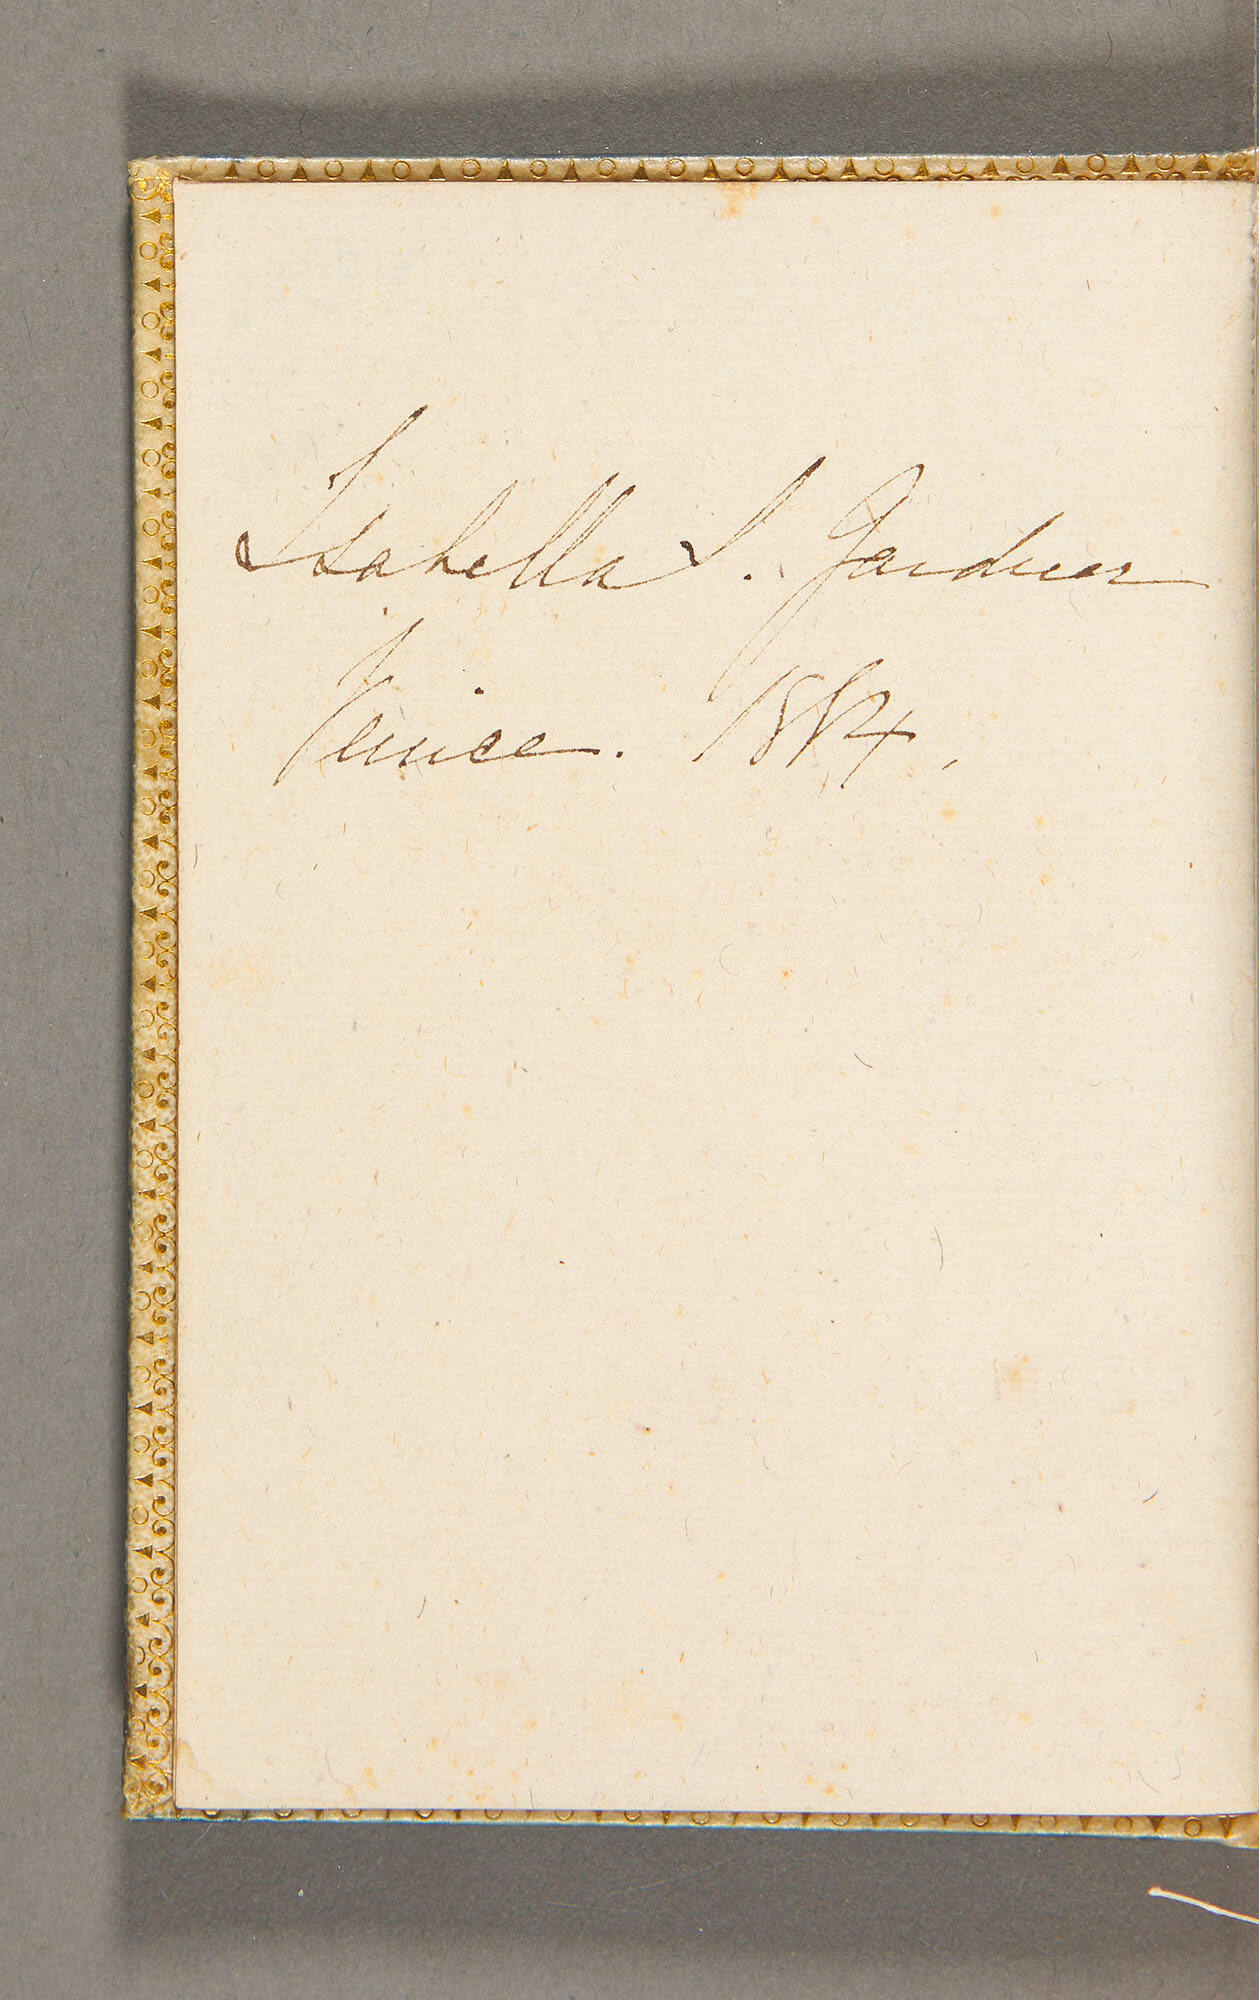 Isabella S. Gardner
Venice. 1884.